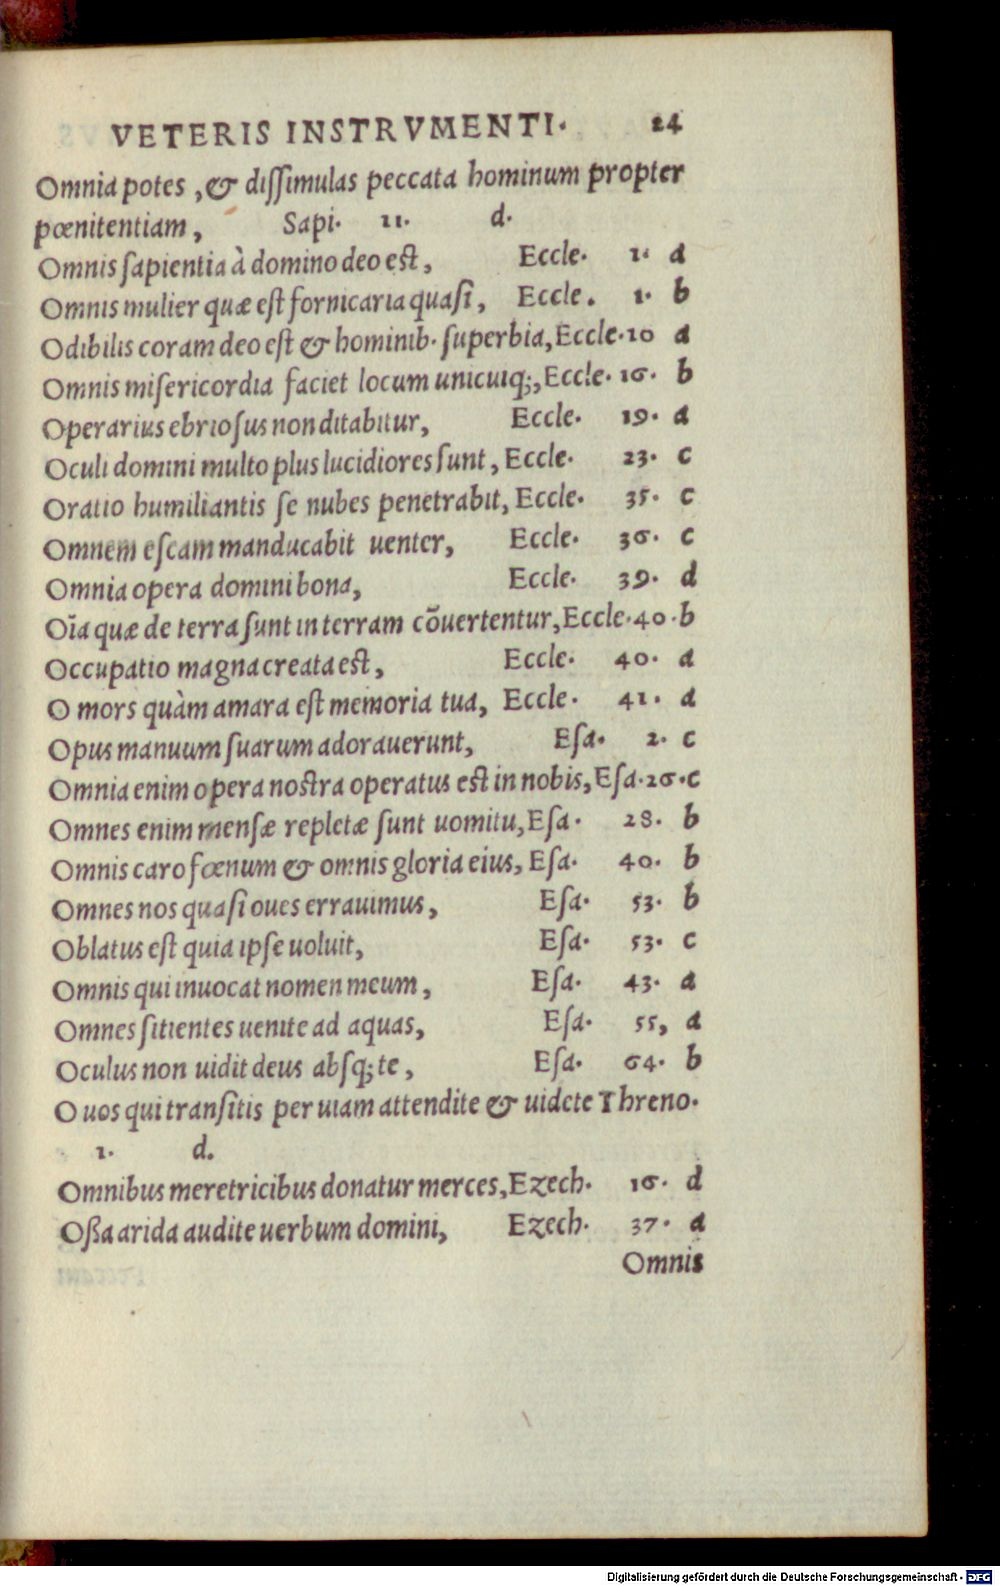 VETERIS INSTRVMENTI. 24
Omnia potes, & dissimulas peccata hominum propter
pœnitentiam, Sapi. 11. d.
Omnis sapientia à domino deo est, Eccle. 1. a
Omnis mulier quæ est fornicaria quasi, Eccle. 1. b
Odibilis coram deo est & hominib. superbia, Eccle. 10 a
Omnis misericordia faciet locum unicuiq;, Eccle. 16. b
Operarius ebriosus non ditabitur, Eccle. 19. a
Oculi domini multo plus lucidiores sunt, Eccle. 23. c
Oratio humiliantis se nubes penetrabit, Eccle. 35. c
Omnem escam manducabit uenter, Eccle. 36. c
Omnia opera domini bona, Eccle. 39. d
Oīa quæ de terra sunt in terram cõuertentur, Eccle. 40. b
Occupatio magna creata est, Eccle. 40. a
O mors quàm amara est memoria tua, Eccle. 41. a
Opus manuum suarum adorauerunt, Esa. 2. c
Omnia enim opera nostra operatus est in nobis, Esa. 26. c
Omnes enim mensæ repletæ sunt uomitu, Esa. 28. b
Omnis caro fœnum & omnis gloria eius, Esa. 40. b
Omnes nos quasi oues errauimus, Esa. 53. b
Oblatus est quia ipse uoluit, Esa. 53. c
Omnis qui inuocat nomen meum, Esa. 43. a
Omnes sitientes uenite ad aquas, Esa. 55, a
Oculus non uidit deus absq; te, Esa. 64. b
O uos qui transitis per uiam attendite & uidete Threno.
1. d.
Omnibus meretricibus donatur merces, Ezech. 16. d
Oßa arida audite uerbum domini, Ezech. 37. a
Omnis
Digitalisierung gefördert durch die Deutsche Forschungsgemeinschaft - DFG